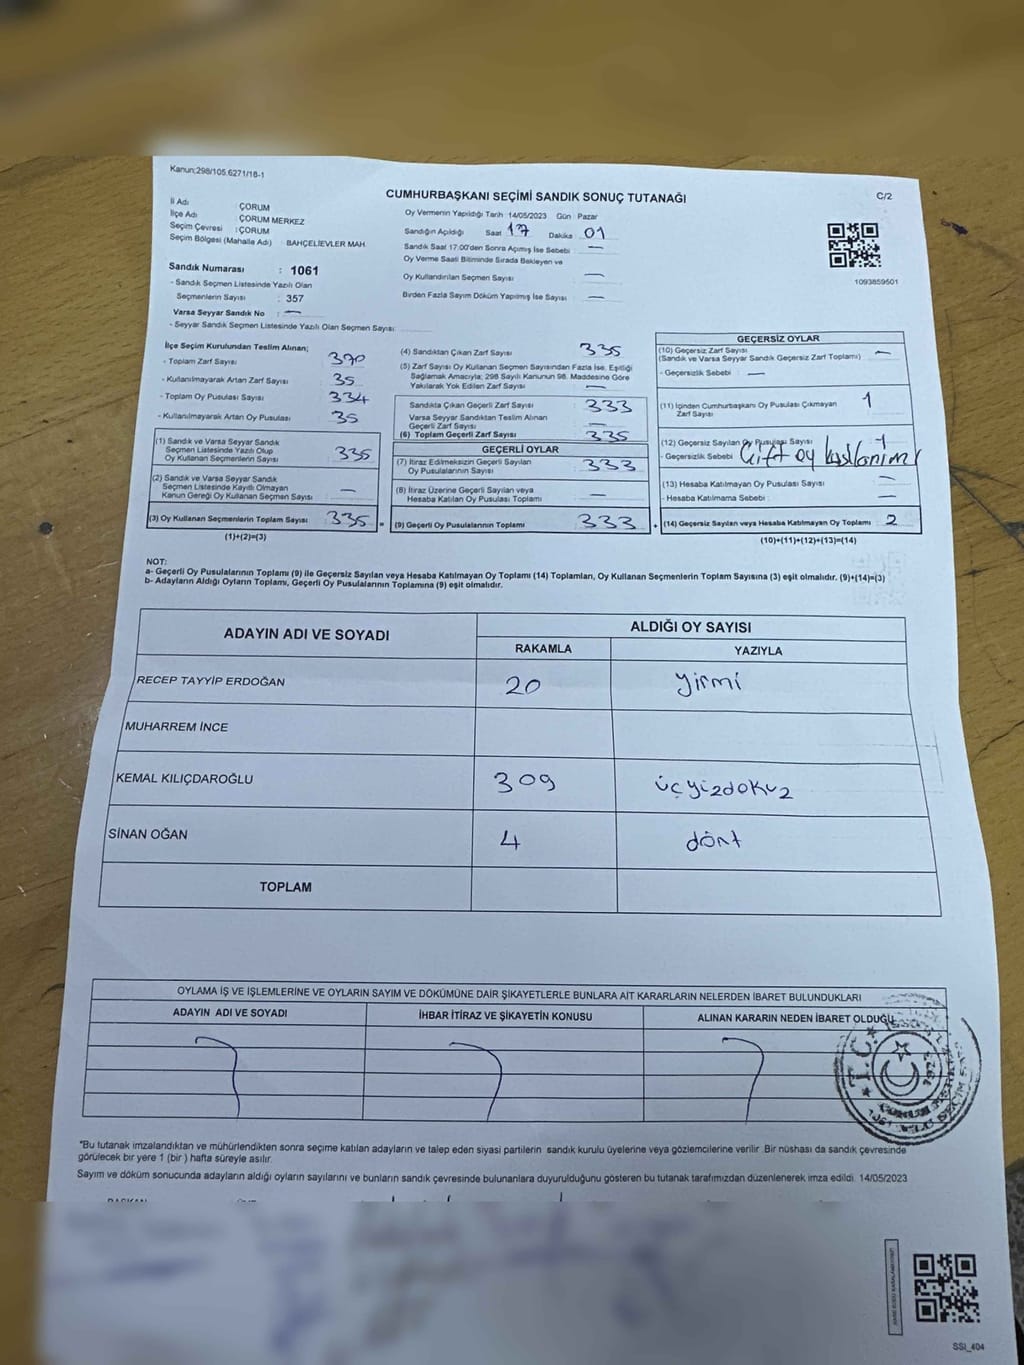 Kanun:298/105.6271/16-1
CUMHURBAŞKANI SEÇİMİ SANDIK SONUÇ TUTANAĞI
C/2
İl Adı : ÇORUM
İlçe Adı : ÇORUM MERKEZ
Seçim Çevresi : ÇORUM
Seçim Bölgesi (Mahalle Adı) : BAHÇELİEVLER MAH.
Sandık Numarası : 1061
- Sandık Seçmen Listesinde Yazılı Olan
Seçmenlerin Sayısı : 357
Varsa Seyyar Sandık No : —
- Seyyar Sandık Seçmen Listesinde Yazılı Olan Seçmen Sayısı:
Oy Vermenin Yapıldığı Tarih 14/05/2023 Gün : Pazar
Sandığın Açıldığı Saat 17 Dakika 01
Sandık Saat 17:00'den Sonra Açımış İse Sebebi —
Oy Verme Saati Bitiminde Sırada Bekleyen ve
Oy Kullandırılan Seçmen Sayısı —
Birden Fazla Sayım Döküm Yapılmış İse Sayısı —
1093859501
İlçe Seçim Kurulundan Teslim Alınan;
- Toplam Zarf Sayısı : 370
- Kullanılmayarak Artan Zarf Sayısı : 35
- Toplam Oy Pusulası Sayısı : 334
- Kullanılmayarak Artan Oy Pusulası : 35
(1) Sandık ve Varsa Seyyar Sandık
Seçmen Listesinde Yazılı Olup
Oy Kullanan Seçmenlerin Sayısı : 335
(2) Sandık ve Varsa Seyyar Sandık
Seçmen Listesinde Kayıtlı Olmayan
Kanun Gereği Oy Kullanan Seçmen Sayısı : —
(3) Oy Kullanan Seçmenlerin Toplam Sayısı : 335 =
(1)+(2)=(3)
(4) Sandıktan Çıkan Zarf Sayısı : 335
(5) Zarf Sayısı Oy Kullanan Seçmen Sayısından Fazla İse, Eşitliği
Sağlamak Amacıyla; 298 Sayılı Kanunun 98. Maddesine Göre
Yakılarak Yok Edilen Zarf Sayısı : —
Sandıkta Çıkan Geçerli Zarf Sayısı : 333
Varsa Seyyar Sandıktan Teslim Alınan
Geçerli Zarf Sayısı : —
(6) Toplam Geçerli Zarf Sayısı : 335
GEÇERLİ OYLAR
(7) İtiraz Edilmeksizin Geçerli Sayılan
Oy Pusulalarının Sayısı : 333
(8) İtiraz Üzerine Geçerli Sayılan veya
Hesaba Katılan Oy Pusulası Toplamı : —
(9) Geçerli Oy Pusulalarının Toplamı : 333 +
GEÇERSİZ OYLAR
(10) Geçersiz Zarf Sayısı
(Sandık ve Varsa Seyyar Sandık Geçersiz Zarf Toplamı) : —
- Geçersizlik Sebebi : —
(11) İçinden Cumhurbaşkanı Oy Pusulası Çıkmayan
Zarf Sayısı : 1
(12) Geçersiz Sayılan Oy Pusulası Sayısı : 1
- Geçersizlik Sebebi : Çift oy kullanımı
(13) Hesaba Katılmayan Oy Pusulası Sayısı : —
- Hesaba Katılmama Sebebi : —
(14) Geçersiz Sayılan veya Hesaba Katılmayan Oy Toplamı : 2
(10)+(11)+(12)+(13)=(14)
NOT:
a- Geçerli Oy Pusulalarının Toplamı (9) ile Geçersiz Sayılan veya Hesaba Katılmayan Oy Toplamı (14) Toplamları, Oy Kullanan Seçmenlerin Toplam Sayısına (3) eşit olmalıdır. (9)+(14)=(3)
b- Adayların Aldığı Oyların Toplamı, Geçerli Oy Pusulalarının Toplamına (9) eşit olmalıdır.
ADAYIN ADI VE SOYADI
ALDIĞI OY SAYISI
RAKAMLA YAZIYLA
RECEP TAYYİP ERDOĞAN 20 yirmi
MUHARREM İNCE
KEMAL KILIÇDAROĞLU 309 üçyüzdokuz
SİNAN OĞAN 4 dört
TOPLAM
OYLAMA İŞ VE İŞLEMLERİNE VE OYLARIN SAYIM VE DÖKÜMÜNE DAİR ŞİKAYETLERLE BUNLARA AİT KARARLARIN NELERDEN İBARET BULUNDUKLARI
ADAYIN ADI VE SOYADI İHBAR İTİRAZ VE ŞİKAYETİN KONUSU ALINAN KARARIN NEDEN İBARET OLDUĞU
T.C.
*Bu tutanak imzalandıktan ve mühürlendikten sonra seçime katılan adayların ve talep eden siyasi partilerin sandık kurulu üyelerine veya gözlemcilerine verilir .Bir nüshası da sandık çevresinde
görülecek bir yere 1 (bir ) hafta süreyle asılır.
Sayım ve döküm sonucunda adayların aldığı oyların sayılarını ve bunların sandık çevresinde bulunanlara duyurulduğunu gösteren bu tutanak tarafımızdan düzenlenerek imza edildi. 14/05/2023
SSİ_404